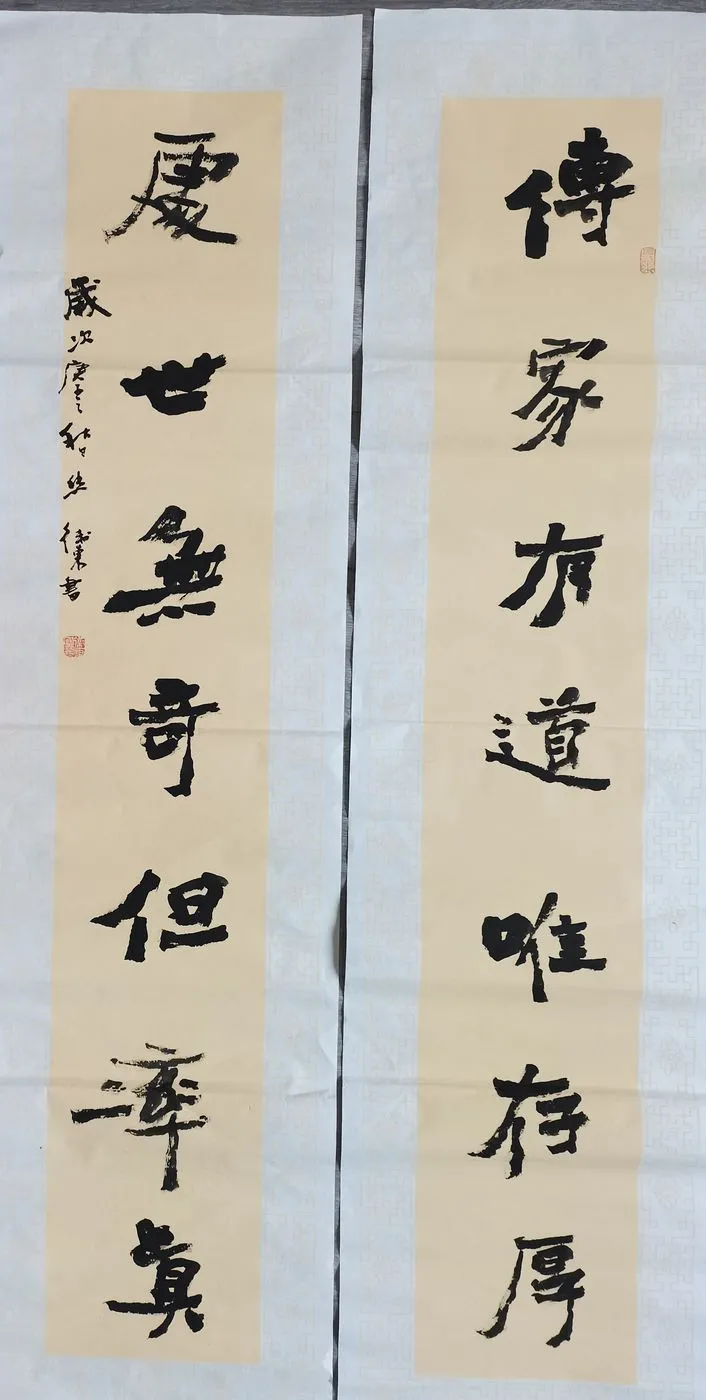 傳家有道唯存厚
處世無奇但率真
歲次庚子秋
書